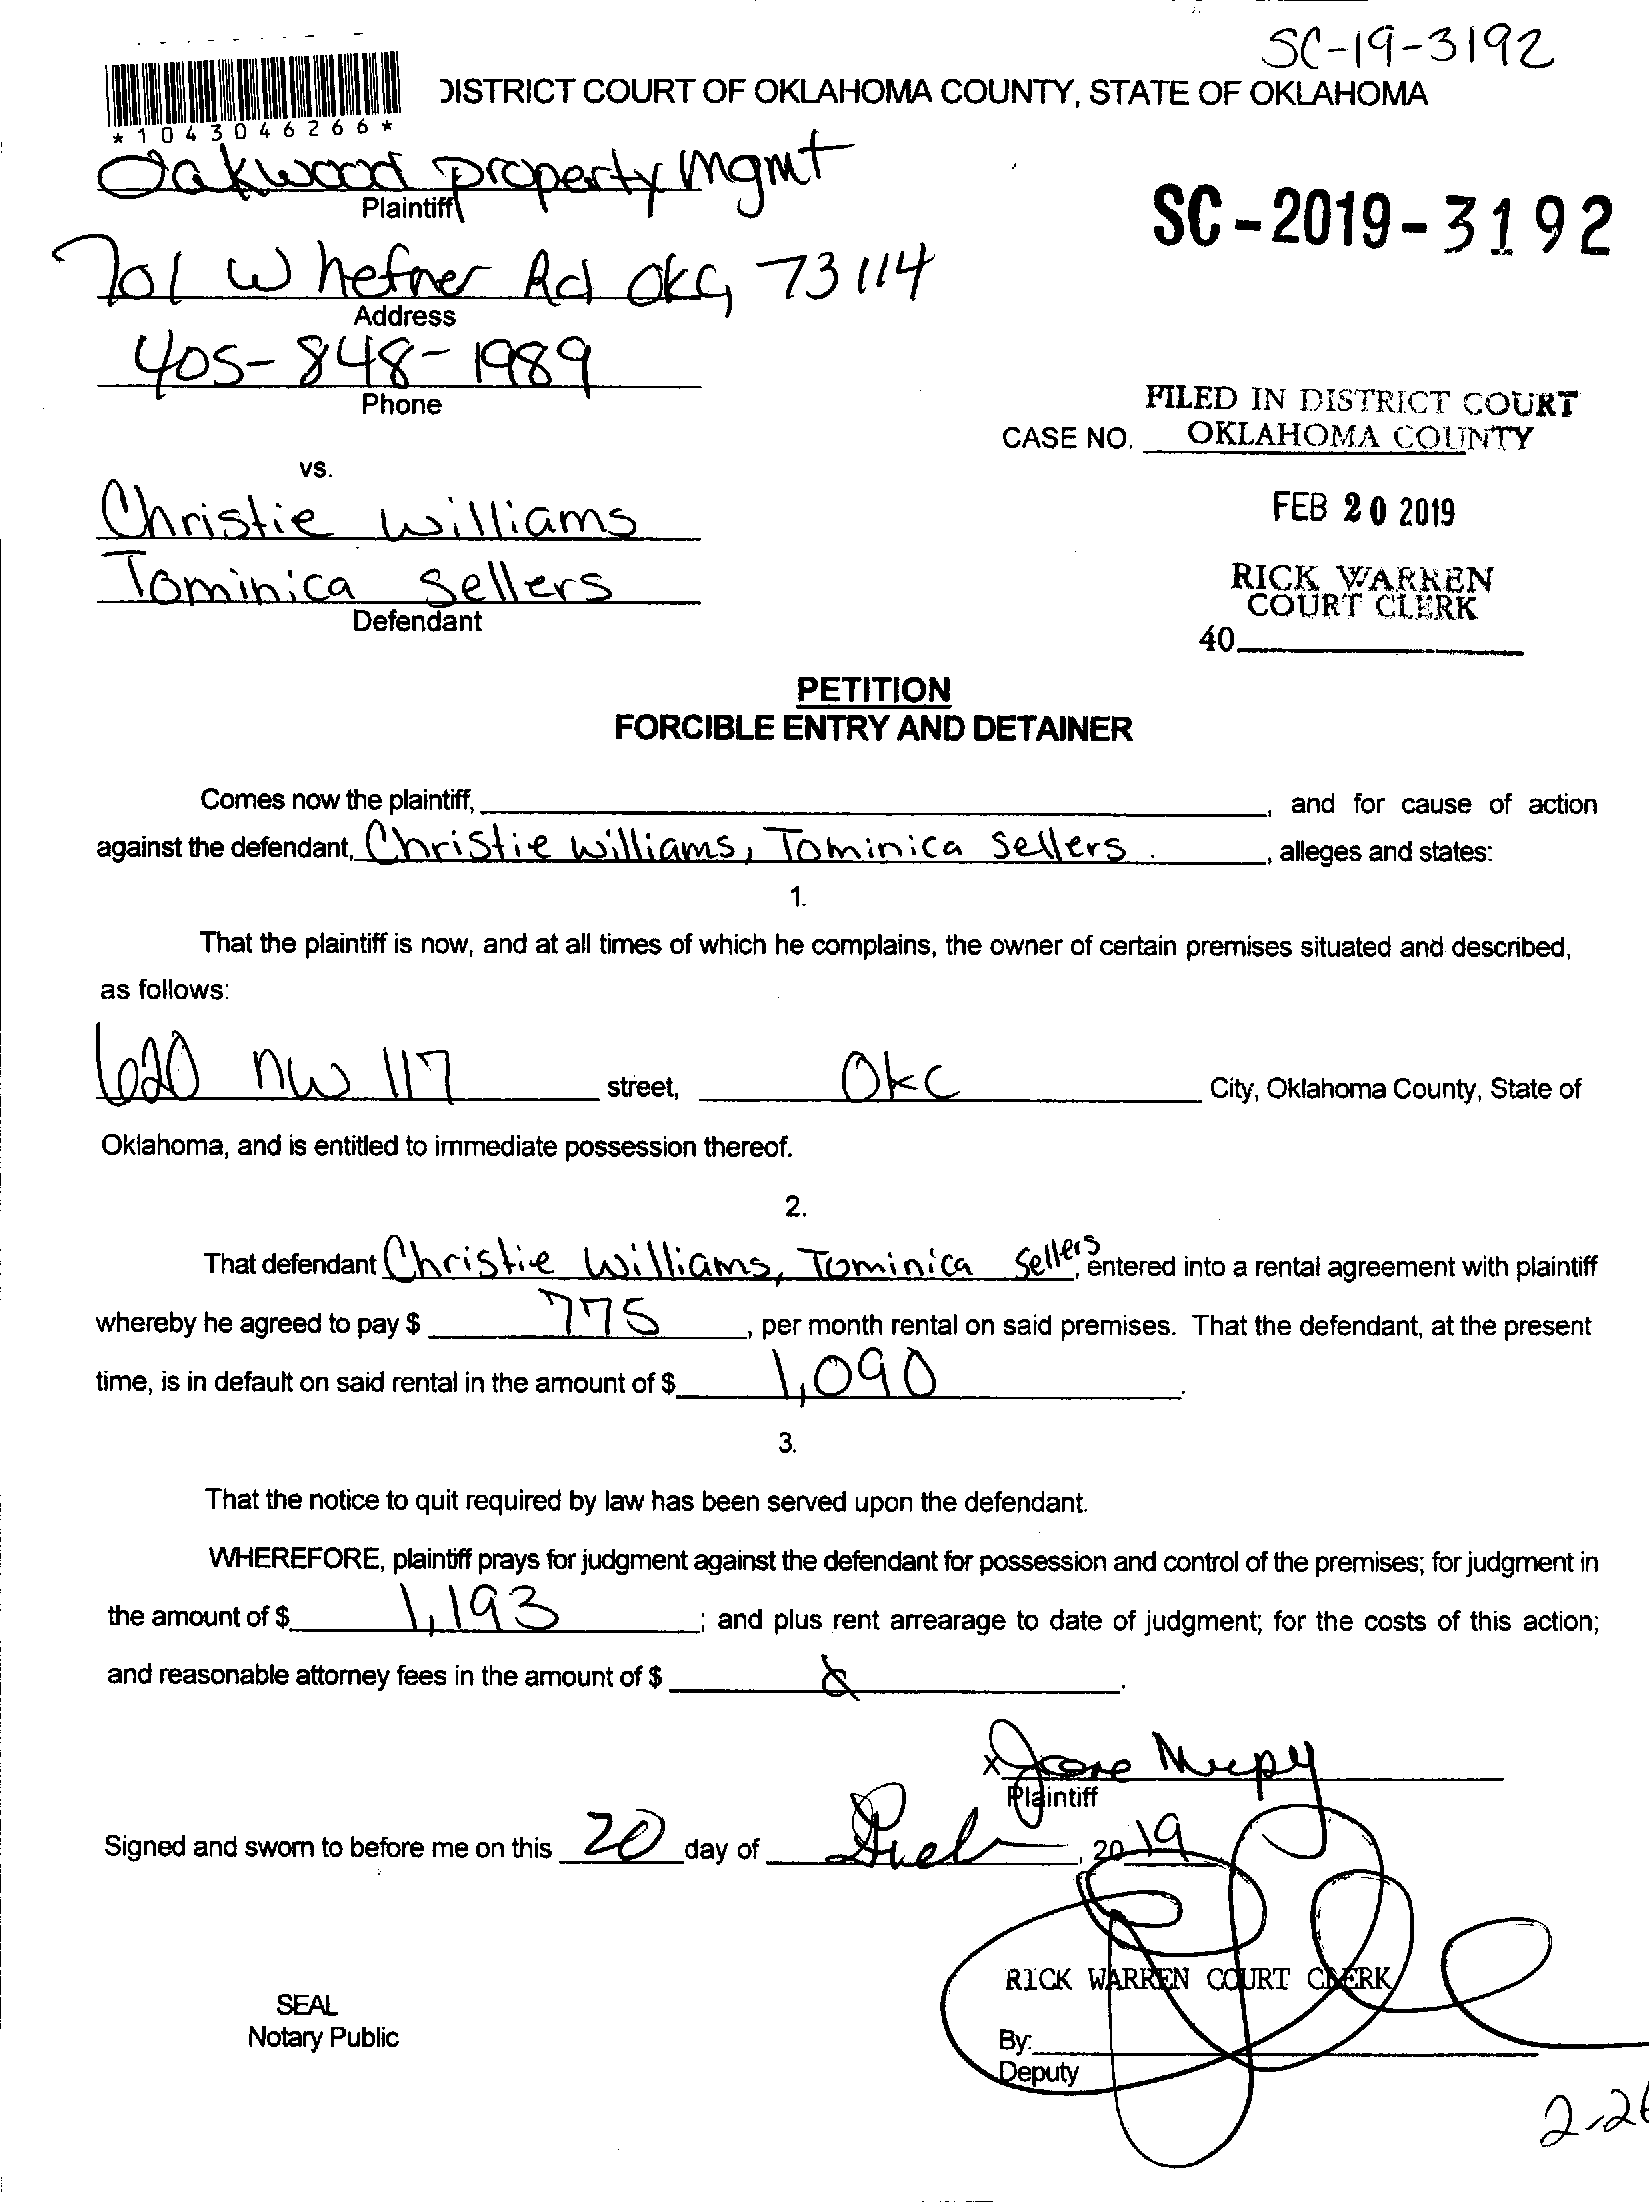 SC-19-3192
DISTRICT COURT OF OKLAHOMA COUNTY, STATE OF OKLAHOMA
*1043046266*
Oakwood property Mgmt
Plaintiff
SC-2019-3192
701 W hefner Rd OKC, 73114
Address
405-848-1989
Phone
FILED IN DISTRICT COURT
CASE NO. OKLAHOMA COUNTY
vs.
Christie Williams
FEB 20 2019
Tominica Sellers
Defendant
RICK WARREN
COURT CLERK
40
PETITION
FORCIBLE ENTRY AND DETAINER
Comes now the plaintiff, , and for cause of action
against the defendant, Christie Williams, Tominica Sellers , alleges and states:
1.
That the plaintiff is now, and at all times of which he complains, the owner of certain premises situated and described,
as follows:
620 NW 117 street, OKC City, Oklahoma County, State of
Oklahoma, and is entitled to immediate possession thereof.
2.
That defendant Christie Williams, Tominica Sellers, entered into a rental agreement with plaintiff
whereby he agreed to pay $ 775, per month rental on said premises. That the defendant, at the present
time, is in default on said rental in the amount of $ 1,090.
3.
That the notice to quit required by law has been served upon the defendant.
WHEREFORE, plaintiff prays for judgment against the defendant for possession and control of the premises; for judgment in
the amount of $ 1,193; and plus rent arrearage to date of judgment; for the costs of this action;
and reasonable attorney fees in the amount of $ .
x
Plaintiff
Signed and sworn to before me on this 20 day of , 2019
RICK WARREN COURT CLERK
SEAL
Notary Public
By:
Deputy